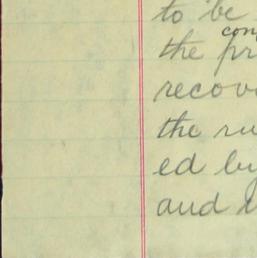 to be
con
the pr
recov
the ru
ed bu
and